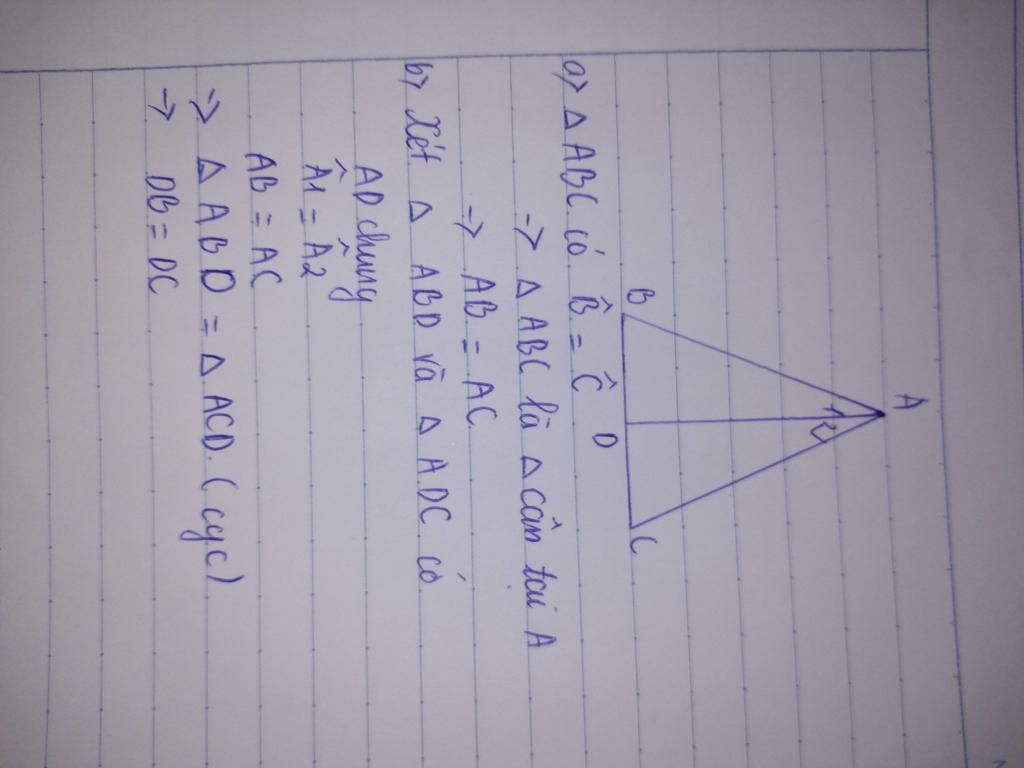 A
1 2
B D C
a) Δ ABC có B̂ = Ĉ
=> Δ ABC là Δ cân tại A
=> AB = AC
b) Xét Δ ABD và Δ ADC có
AD chung
Â1 = Â2
AB = AC
=> Δ ABD = Δ ACD. (cgc)
=> DB = DC